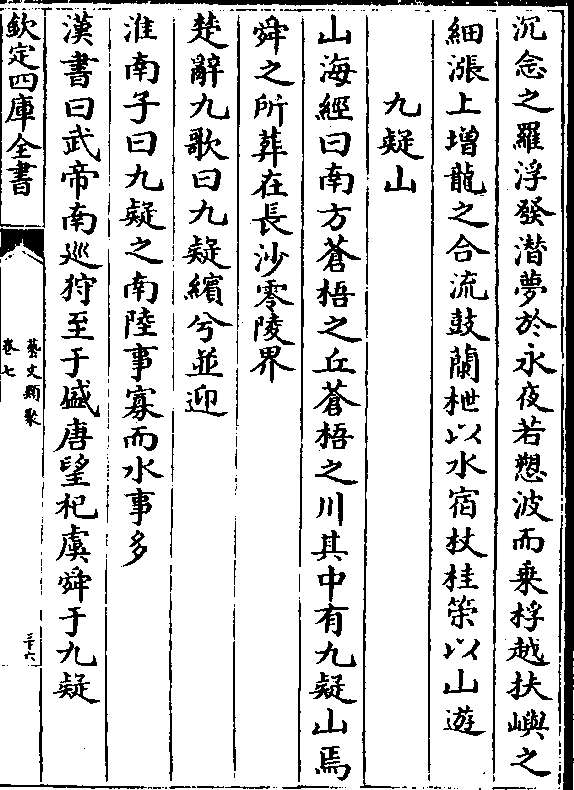 沉念之羅浮發潛夢於永夜若愬波而乗桴越扶嶼之
細漲上増龍之合流鼓蘭枻以水宿杖桂策以山遊
九疑山
山海經曰南方蒼梧之丘蒼梧之川其中有九疑山焉
舜之所葬在長沙零陵界
楚辭九歌曰九疑繽兮並迎
淮南子曰九疑之南陸事寡而水事多
漢書曰武帝南巡狩至于盛唐望祀虞舜于九疑
欽定四庫全書
藝文類聚
卷七
三十六